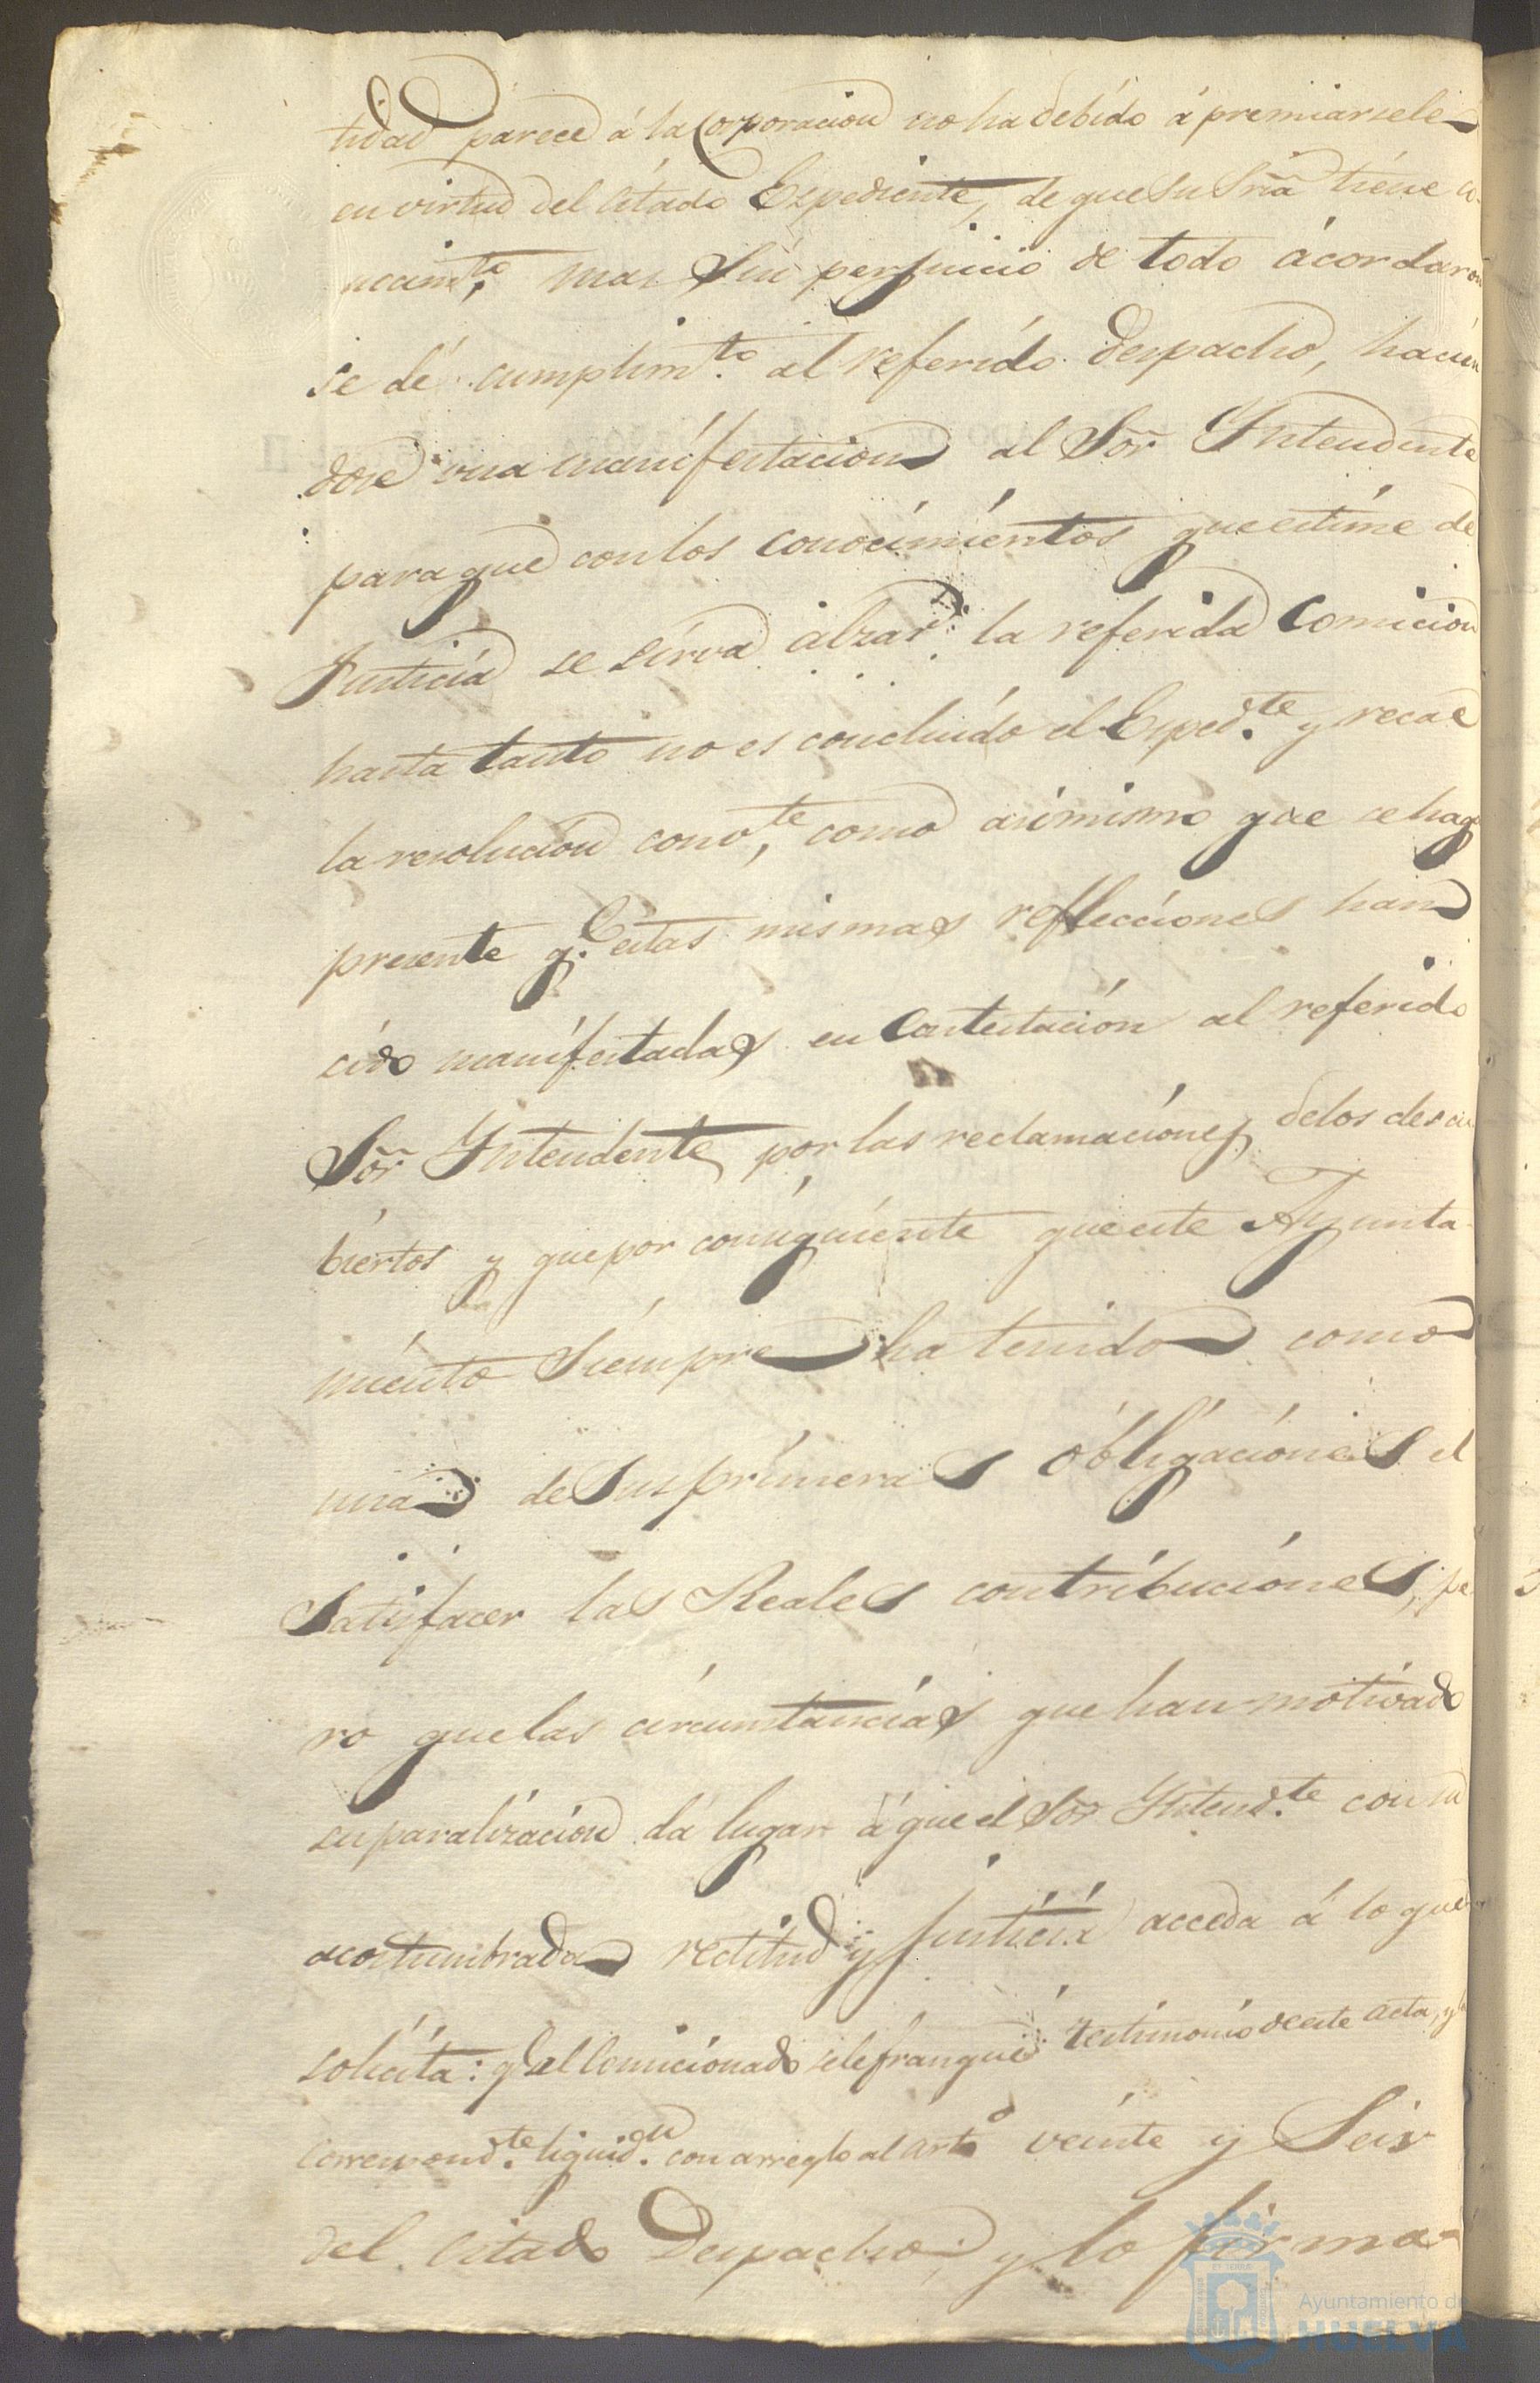 tidad parece á la Corporacion no ha debido ápremiarsele
en virtud del citado Expediente, de que su Sria tiene co-
nocimto. mas Sin perjuicio de todo ácordaron
se dé cumplimto. al referido despacho, hacien
dose una manifestacion al Sor Yntendente
para que con los conocimientos que estime de
Justicia se sirva alzar la referida Comicion
hasta tanto no es concluido el Expedte. y recae
la resolucion convte, como asimismo que se haga
presente q.e estas mismas reflecciones han
cido manifestadas en Contestacion al referido
Sor Yntendente por las reclamaciones delos descu
biertos y que por consiguiente que este Ayunta-
miento Siempre ha tenido como
una de sus primeras óbligaciones el
Satisfacer las Reales contribuciones, pe
ro que las circunstancias que han motivado
su paralizacion dá lugar á que el Sor Yntendte. con su
acostumbrada rectitud y Justicia acceda á lo que
solicita: q.e al Comicionado se le franquée testimonio de este acta, y la
Correspondte. liquidn. con arreglo al arto veinte y Seis
del citado Despacho; y lo firma-
Ayuntamiento de
HUELVA